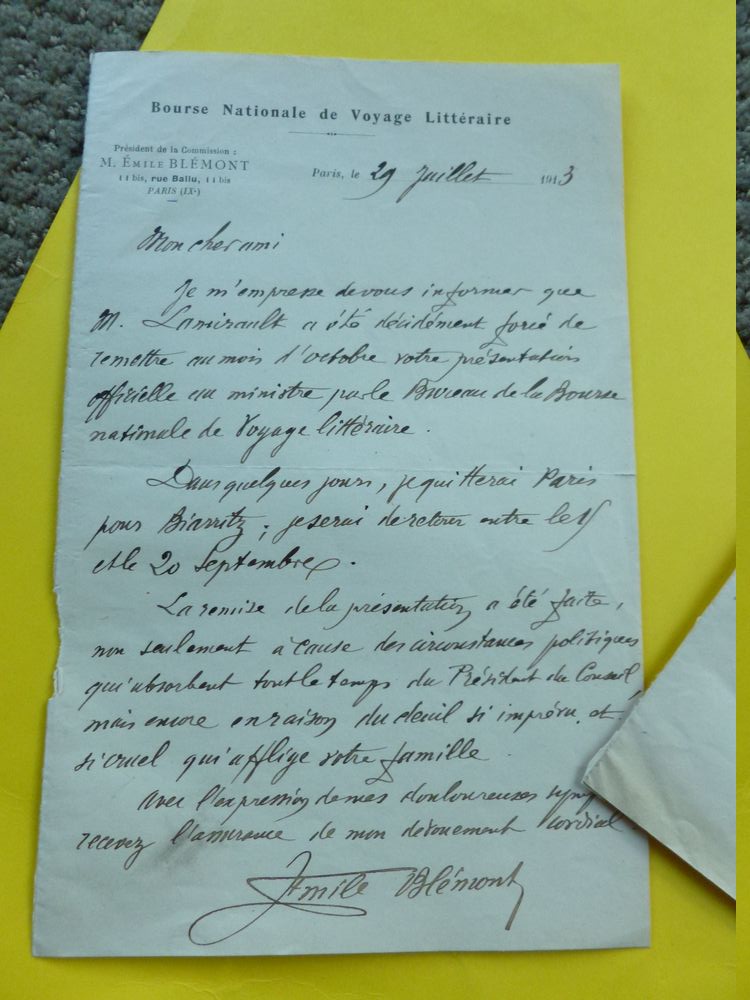 Bourse Nationale de Voyage Littéraire
Président de la Commission :
M. ÉMILE BLÉMONT
11 bis, rue Ballu, 11 bis
PARIS (IXe)
Paris, le 29 Juillet 1913
Mon cher ami
Je m'empresse de vous informer que
M. Lamirault a été décidément forcé de
remettre au mois d'octobre votre présentation
officielle au ministre par le Bureau de la Bourse
nationale de Voyage littéraire.
Dans quelques jours, je quitterai Paris
pour Biarritz ; je serai de retour entre le 15
et le 20 Septembre.
La remise de la présentation a été faite,
non seulement à cause des circonstances politiques
qui absorbent tout le temps du Président du Conseil,
mais encore en raison du deuil si imprévu et
si cruel qui afflige votre famille.
Avec l'expression de mes douloureuses
recevez l'assurance de mon dévouement cordial.
Emile Blémont